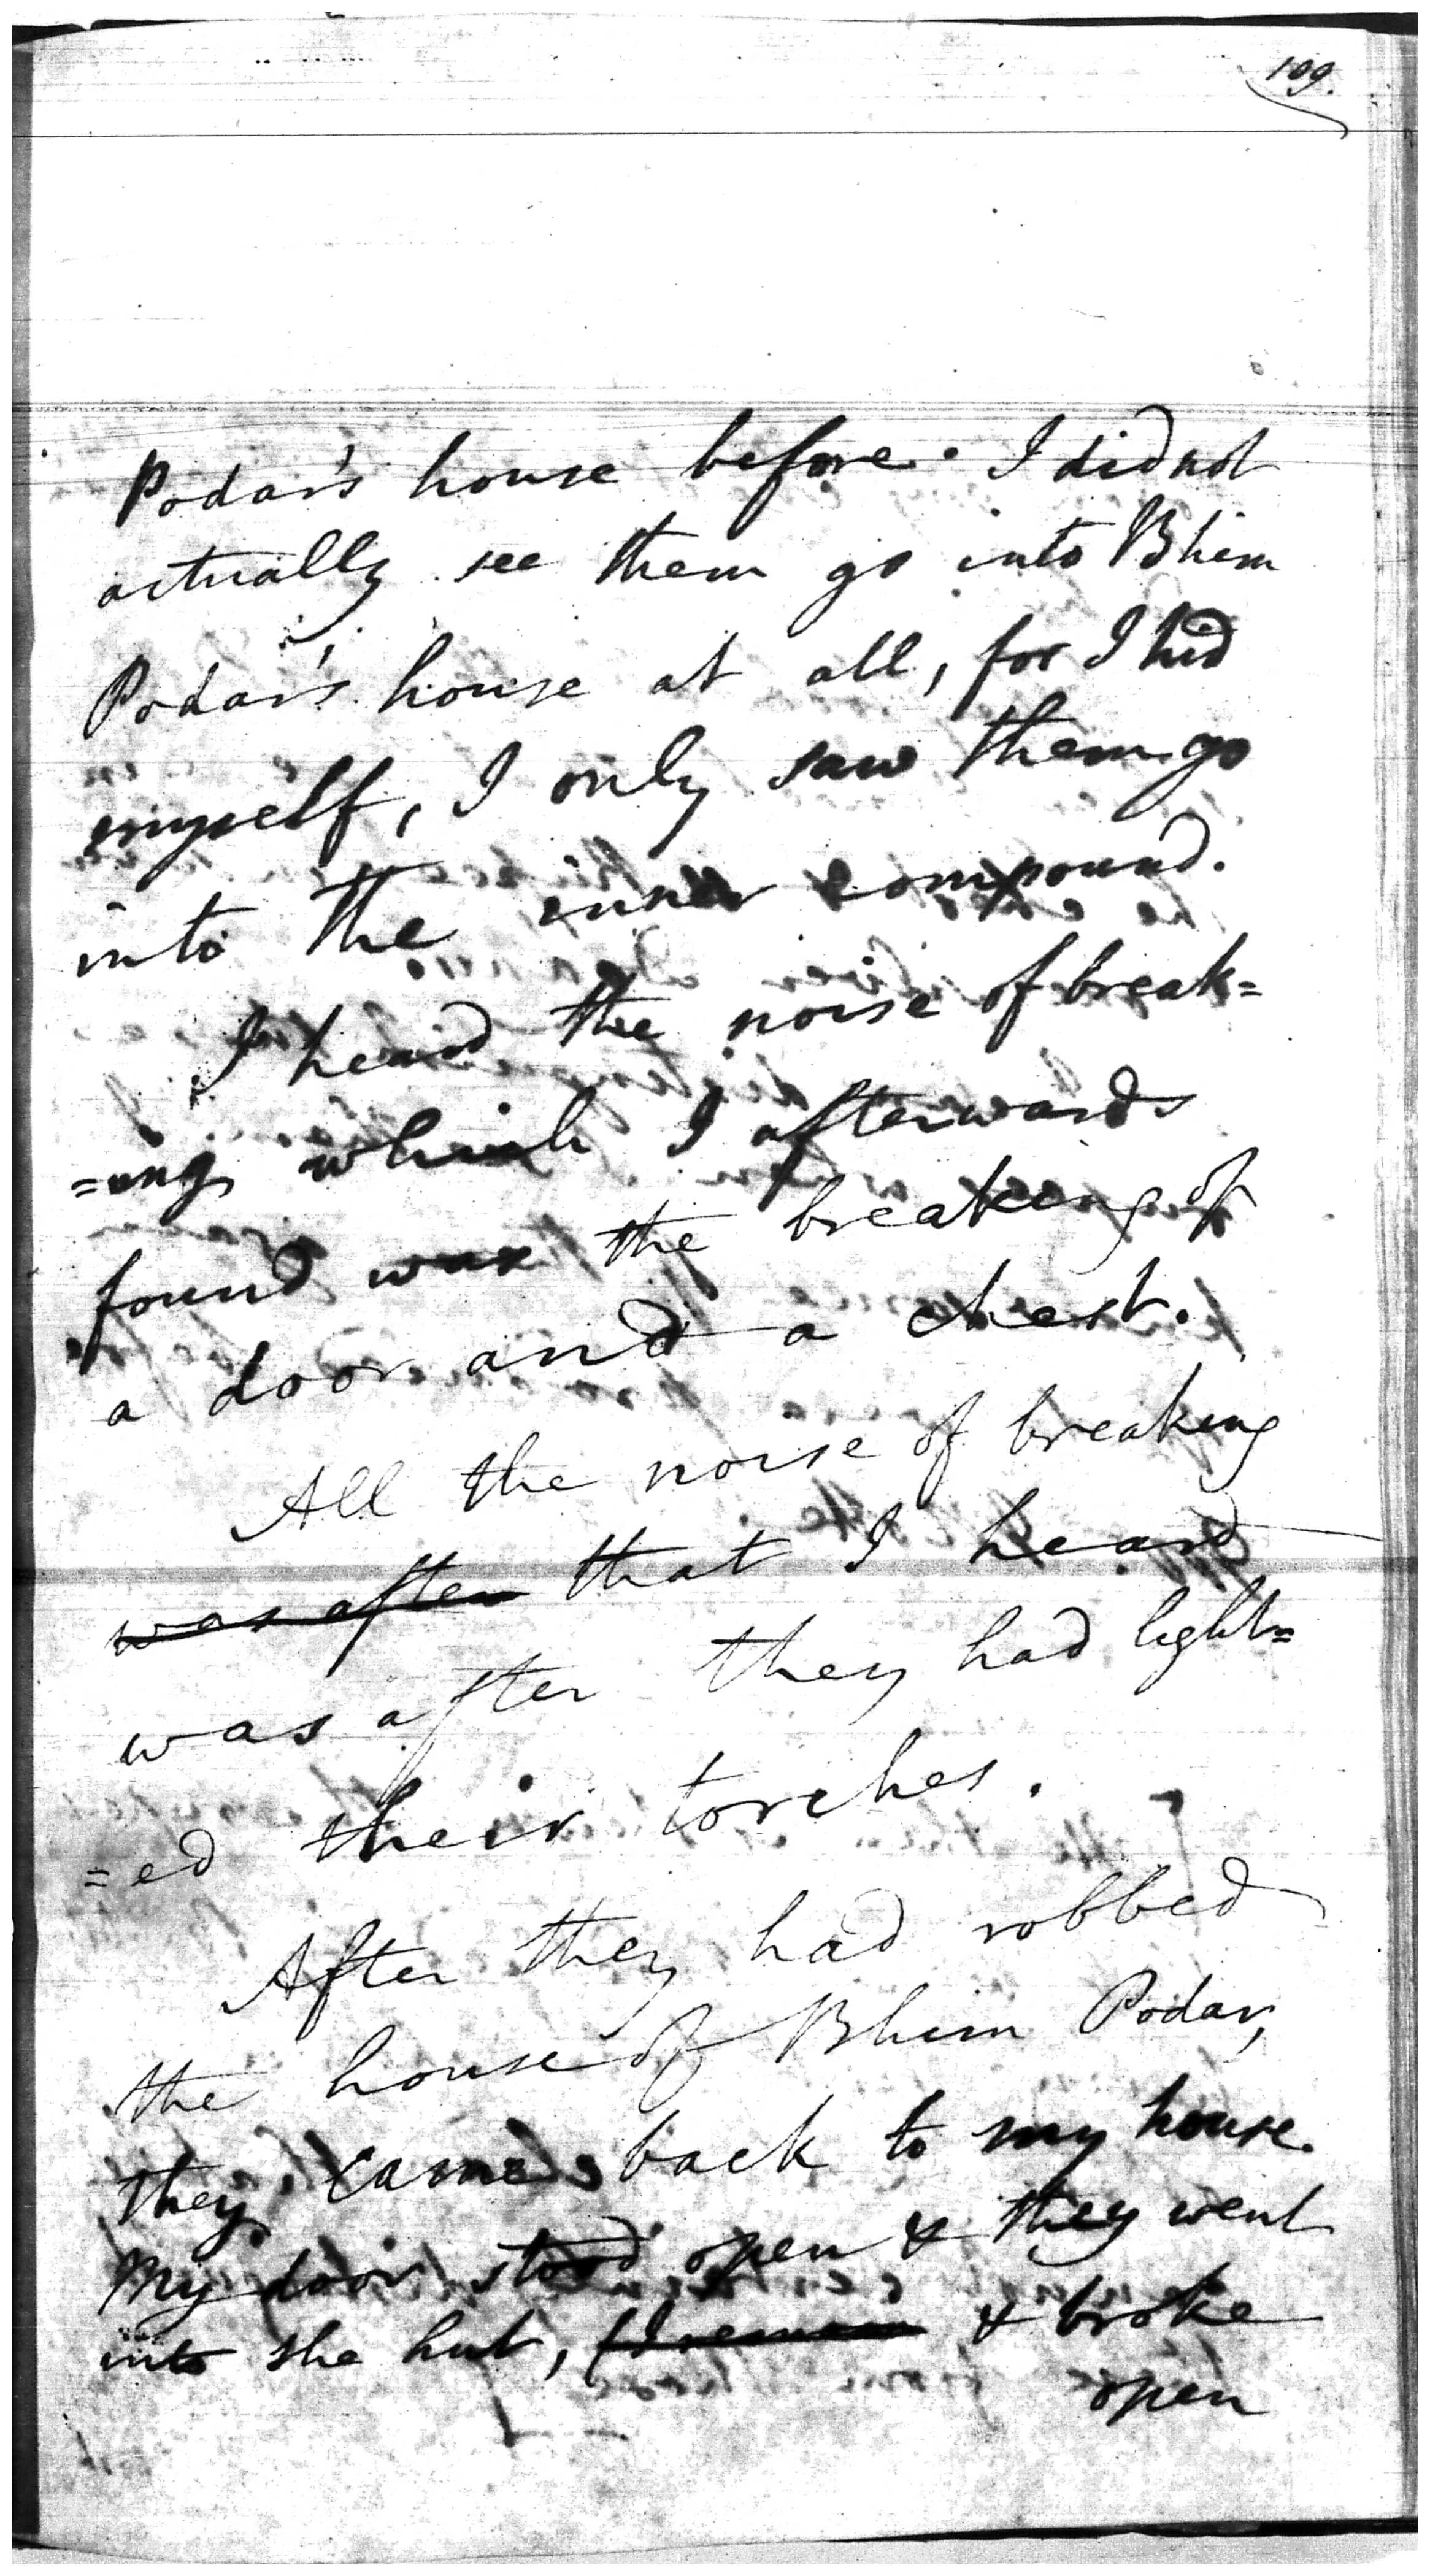 109.
Podar's house before. I did not
actually see them go into Bhim
Podar's house at all, for I hid
myself, I only saw them go
into the inner compound.
I heard the noise of break=
=ing which I afterwards
found was the breaking of
a door and a chest.
All the noise of breaking
was after that I heard
was after they had light=
=ed their torches.
After they had robbed
the house of Bhim Podar,
they came back to my house.
My door stood open & they went
into the hut, & broke
open